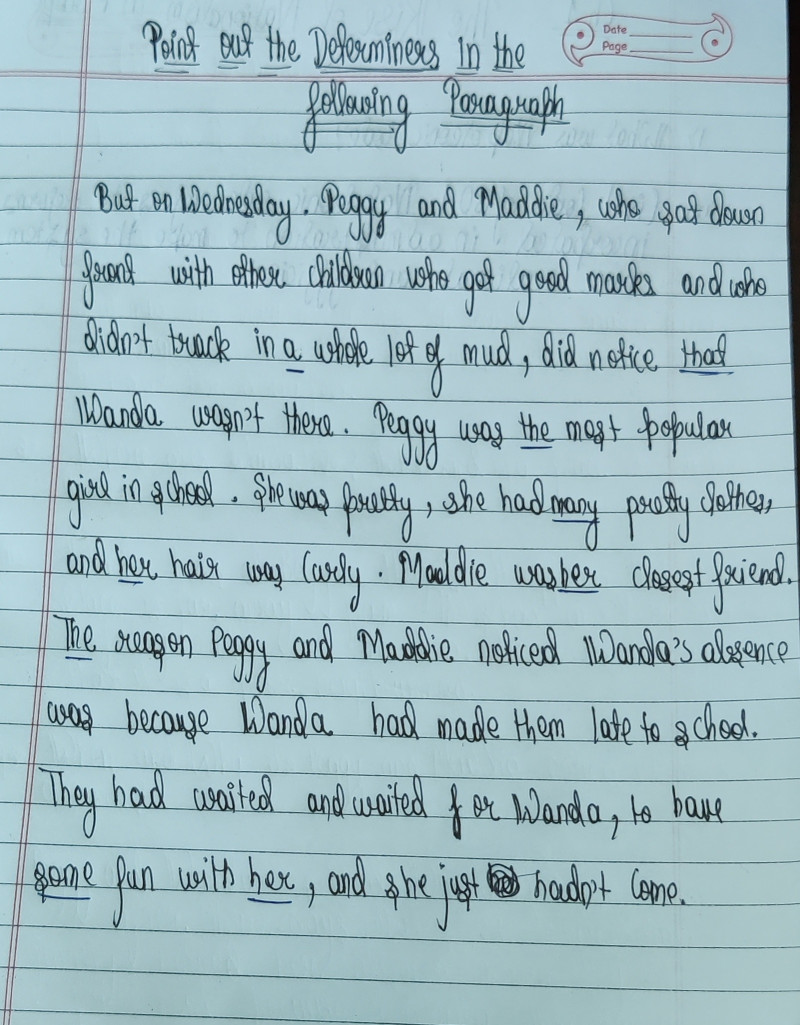 Point out the Determiners in the
Date
Page
following Paragraph
But on Wednesday. Peggy and Maddie, who sat down
front with other children who got good marks and who
didn't track in a whole lot of mud, did notice that
Wanda wasn't there. Peggy was the most popular
girl in school. She was pretty, she had many pretty clothes,
and her hair was Curly. Maddie was her closest friend.
The reason Peggy and Maddie noticed Wanda's absence
was because Wanda had made them late to school.
They had waited and waited for Wanda, to have
some fun with her, and she just hadn't Come.